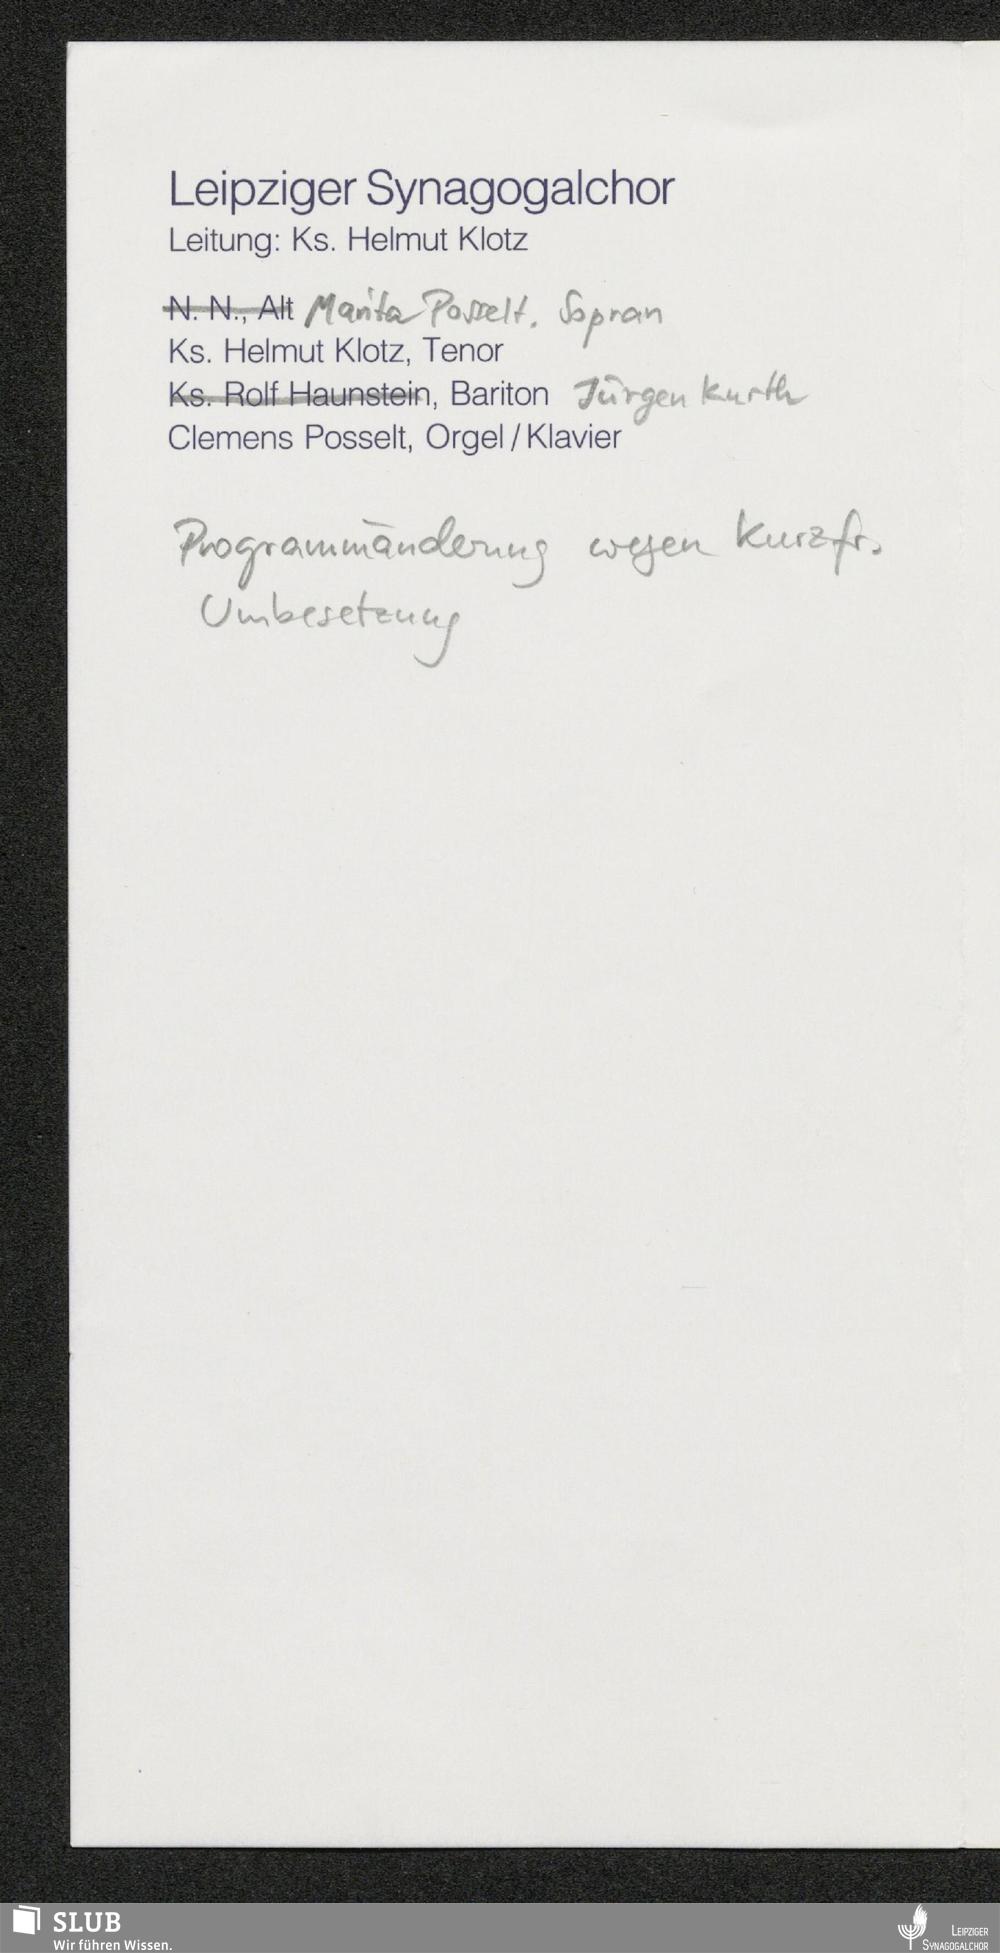 Leipziger Synagogalchor
Leitung: Ks. Helmut Klotz
N. N., Alt Marita Posselt. Sopran
Ks. Helmut Klotz, Tenor
Ks. Rolf Haunstein, Bariton Jürgen Kurth
Clemens Posselt, Orgel / Klavier
Programmänderung wegen kurzfr.
Umbesetzung
SLUB
Wir führen Wissen.
LEIPZIGER
SYNAGOGALCHOR